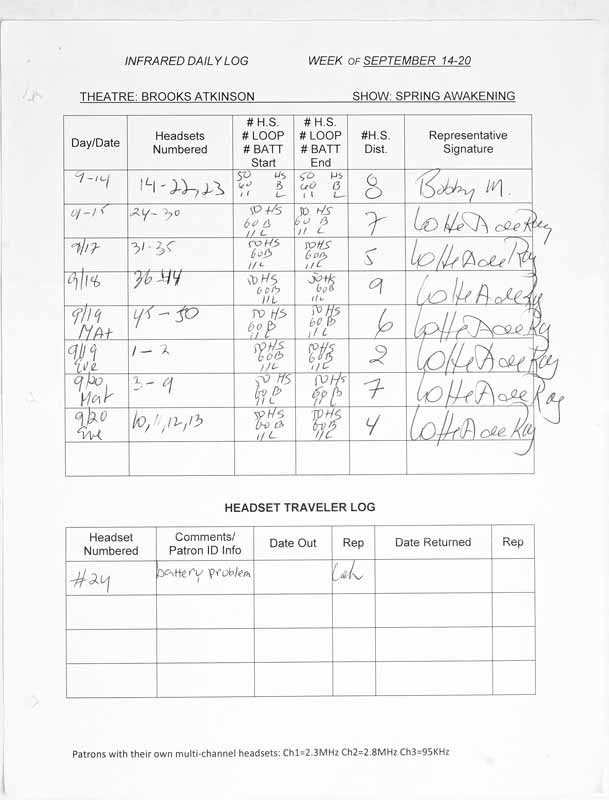 INFRARED DAILY LOG WEEK OF SEPTEMBER 14-20
THEATRE: BROOKS ATKINSON SHOW: SPRING AWAKENING
Day/Date Headsets Numbered # H.S. # LOOP # BATT Start # H.S. # LOOP # BATT End #H.S. Dist. Representative Signature
9-14 14-22,23 50 HS 60 B 11 L 50 HS 60 B 11 L 8 Bobby M.
9-15 24-30 50 HS 60 B 11 L 50 HS 60 B 11 L 7
9/17 31-35 50 HS 60 B 11 L 50 HS 60 B 11 L 5
9/18 36-44 50 HS 60 B 11 L 50 HS 60 B 11 L 9
9/19 MAt 45-50 50 HS 60 B 11 L 50 HS 60 B 11 L 6
9/19 Eve 1-2 50 HS 60 B 11 L 50 HS 60 B 11 L 2
9/20 Mat 3-9 50 HS 60 B 11 L 50 HS 60 B 11 L 7
9/20 Eve 10,11,12,13 50 HS 60 B 11 L 50 HS 60 B 11 L 4
HEADSET TRAVELER LOG
Headset Numbered Comments/ Patron ID Info Date Out Rep Date Returned Rep
#24 battery problem
Patrons with their own multi-channel headsets: Ch1=2.3MHz Ch2=2.8MHz Ch3=95KHz